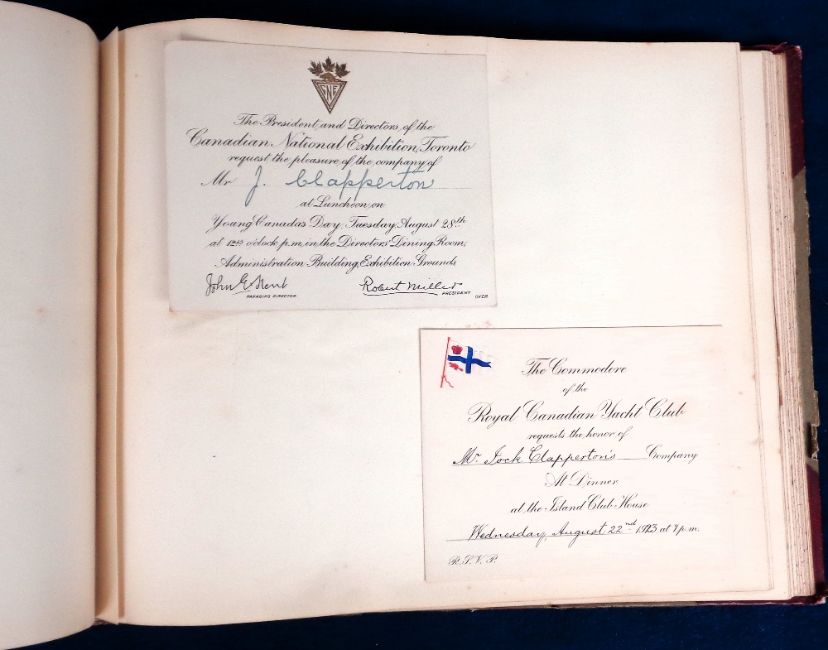 CNE
The President and Directors of the
Canadian National Exhibition, Toronto
request the pleasure of the company of
Mr J. Clapperton
at Luncheon on
Young Canada's Day, Tuesday August 28th
at 12 o'clock p.m. in the Directors' Dining Room,
Administration Building, Exhibition Grounds
John G. Kent Robert Miller
MANAGING DIRECTOR PRESIDENT OVER
The Commodore
of the
Royal Canadian Yacht Club
requests the honor of
Mr. Jock Clapperton's Company
At Dinner
at the Island Club House
Wednesday, August 22nd 1923 at 7 p.m.
R.S.V.P.